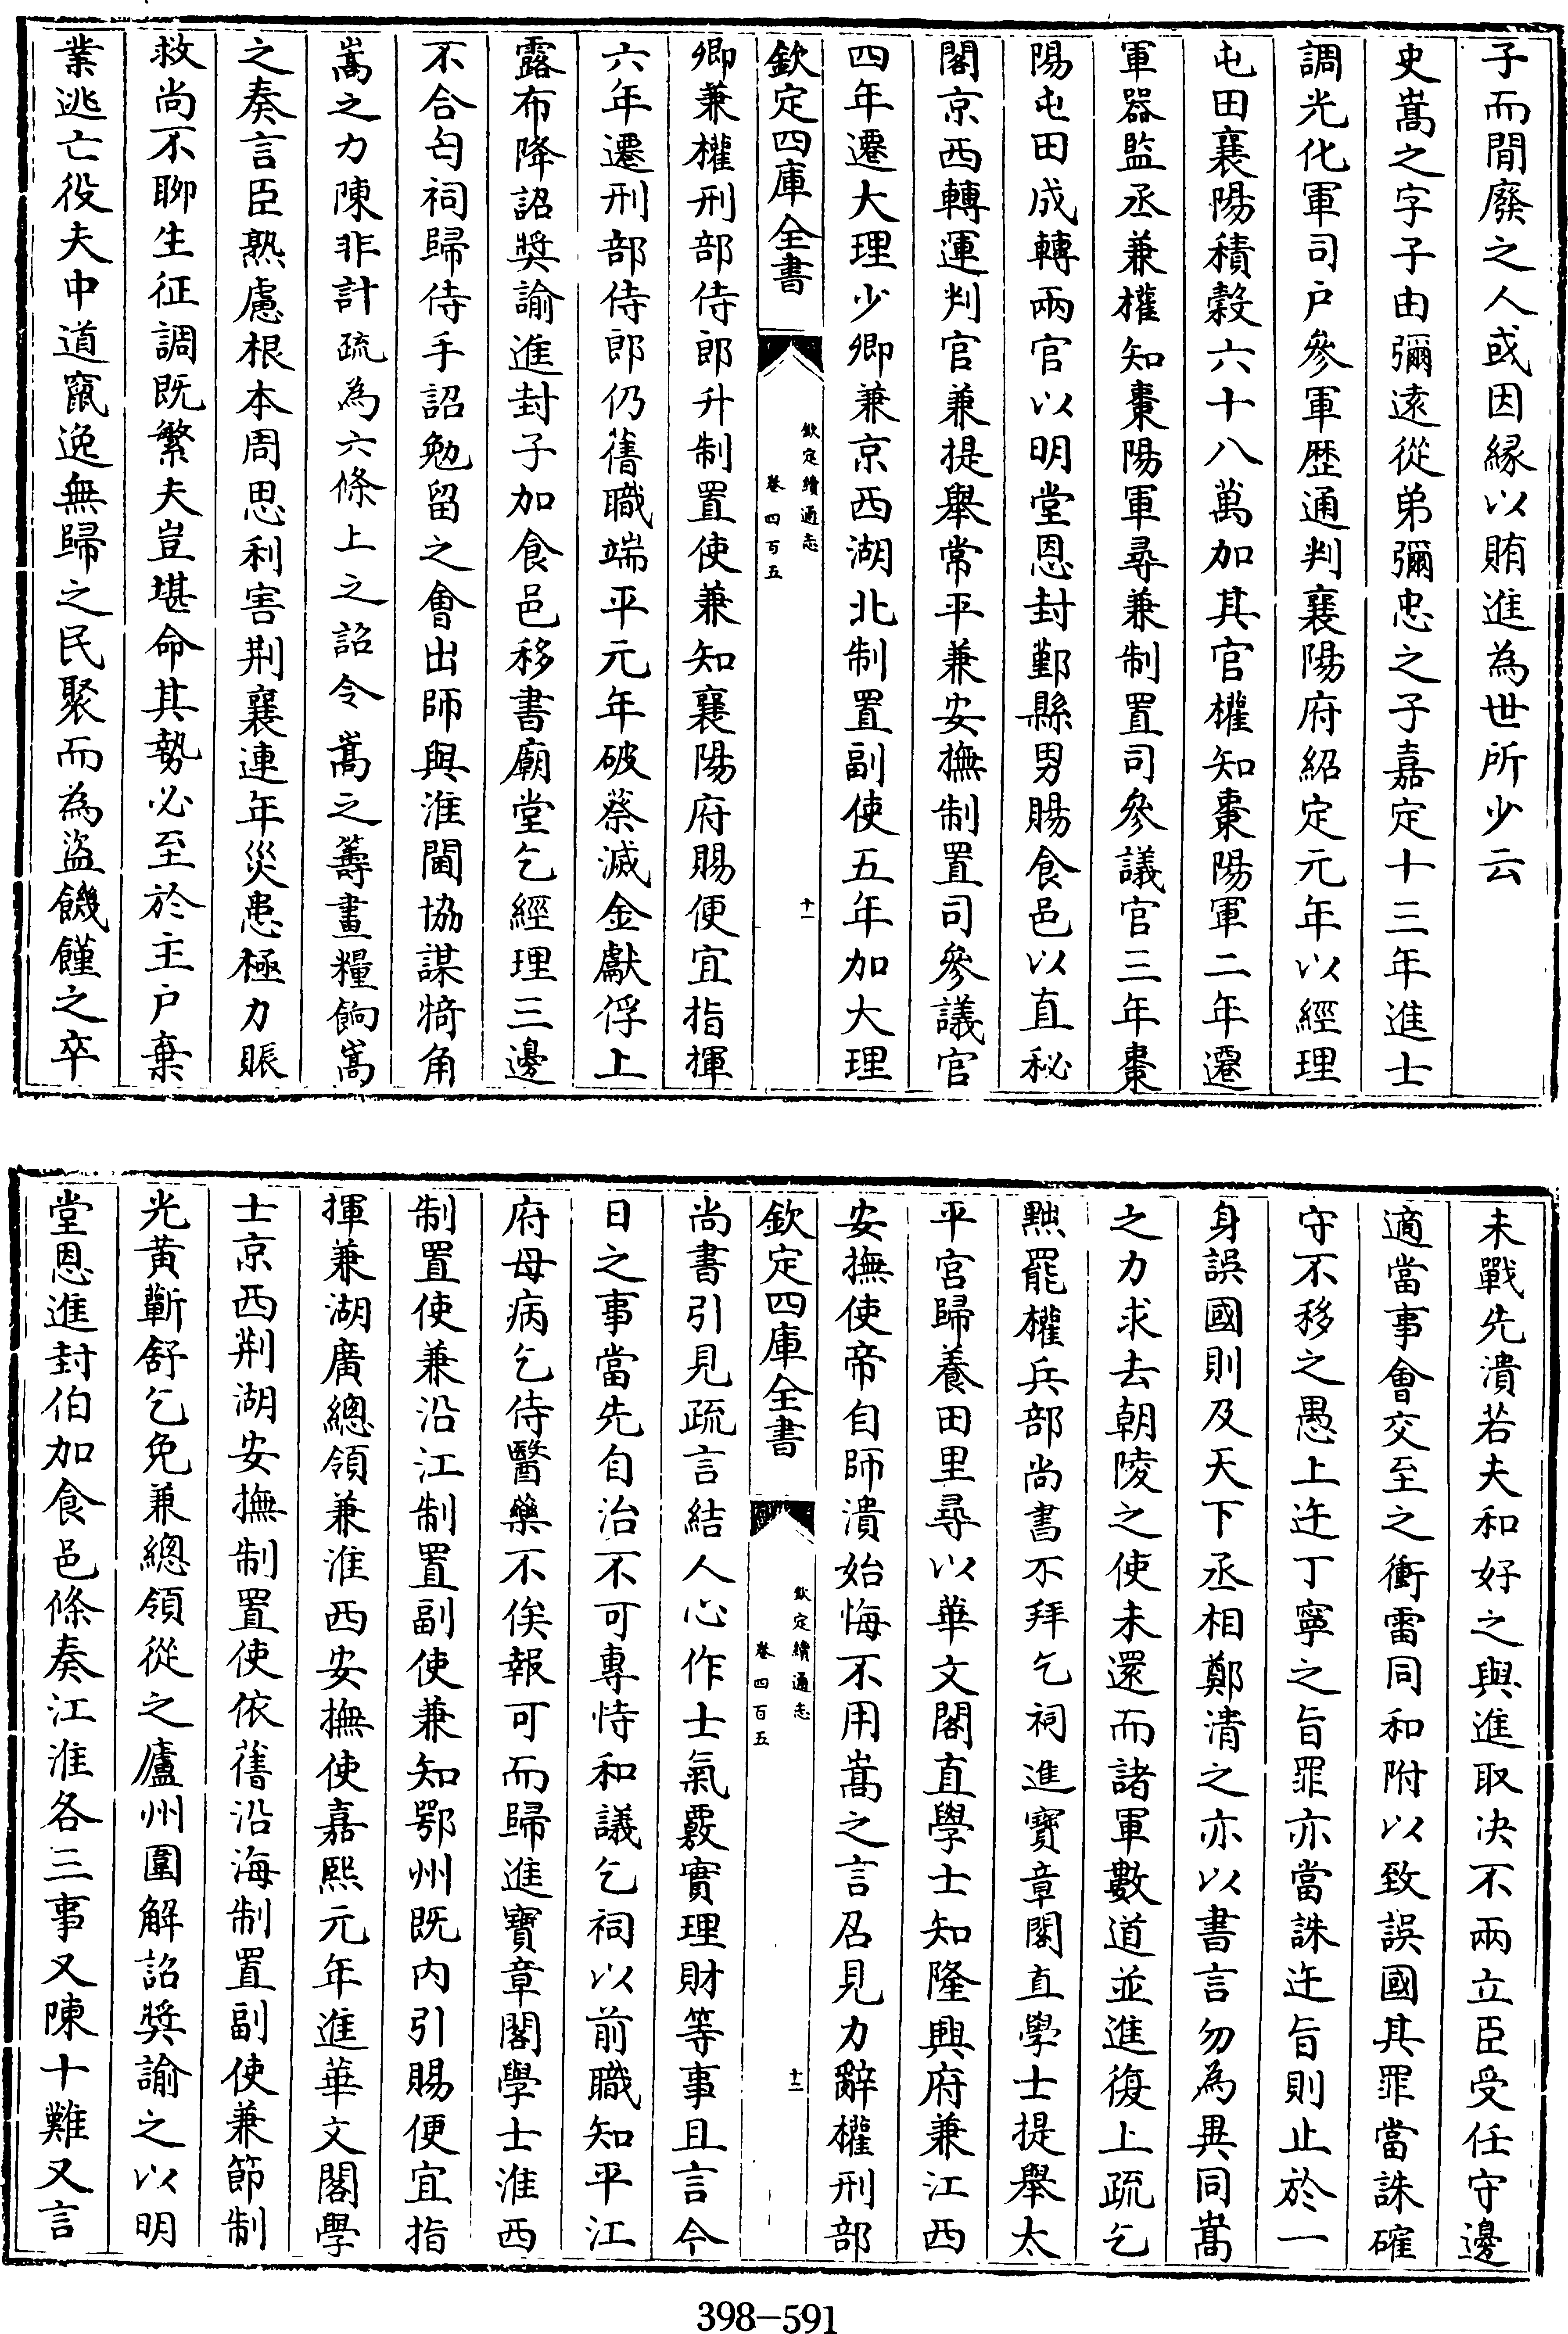 子而閒廢之人或因緣以賄進為世所少云
史嵩之字子由彌遠從弟彌忠之子嘉定十三年進士
調光化軍司户參軍歴通判襄陽府紹定元年以經理
屯田襄陽積穀六十八萬加其官權知棗陽軍二年遷
軍器監丞兼權知棗陽軍尋兼制置司參議官三年棗
陽屯田成轉兩官以明堂恩封鄞縣男賜食邑以直秘
閣京西轉運判官兼提舉常平兼安撫制置司參議官
四年遷大理少卿兼京西湖北制置副使五年加大理
欽定四庫全書
欽定續通志
卷四百五
十一
卿兼權刑部侍郎升制置使兼知襄陽府賜便宜指揮
六年遷刑部侍郎仍舊職端平元年破蔡滅金獻俘上
露布降詔奬諭進封子加食邑移書廟堂乞經理三邊
不合匄祠歸侍手詔勉留之會出師與淮閫協謀犄角
嵩之力陳非計疏為六條上之詔令嵩之籌畫糧餉嵩
之奏言臣熟慮根本周思利害荆襄連年災患極力賑
救尚不聊生征調既繁夫豈堪命其勢必至於主户棄
業逃亡役夫中道竄逸無歸之民聚而為盜饑饉之卒
未戰先潰若夫和好之與進取决不兩立臣受任守邊
適當事會交至之衝雷同和附以致誤國其罪當誅確
守不移之愚上迕丁寧之旨罪亦當誅迕旨則止於一
身誤國則及天下丞相鄭清之亦以書言勿為異同嵩
之力求去朝陵之使未還而諸軍數道並進復上疏乞
黜罷權兵部尚書不拜乞祠進寳章閣直學士提舉太
平宫歸養田里尋以華文閣直學士知隆興府兼江西
安撫使帝自師潰始悔不用嵩之言召見力辭權刑部
欽定四庫全書
欽定續通志
卷四百五
十二
尚書引見疏言結人心作士氣覈實理財等事且言今
日之事當先自治不可專恃和議乞祠以前職知平江
府母病乞侍醫藥不俟報可而歸進寳章閣學士淮西
制置使兼沿江制置副使兼知鄂州既内引賜便宜指
揮兼湖廣總領兼淮西安撫使嘉熙元年進華文閣學
士京西荆湖安撫制置使依舊沿海制置副使兼節制
光黄蘄舒乞免兼總領從之廬州圍解詔奬諭之以明
堂恩進封伯加食邑條奏江淮各三事又陳十難又言
398-591